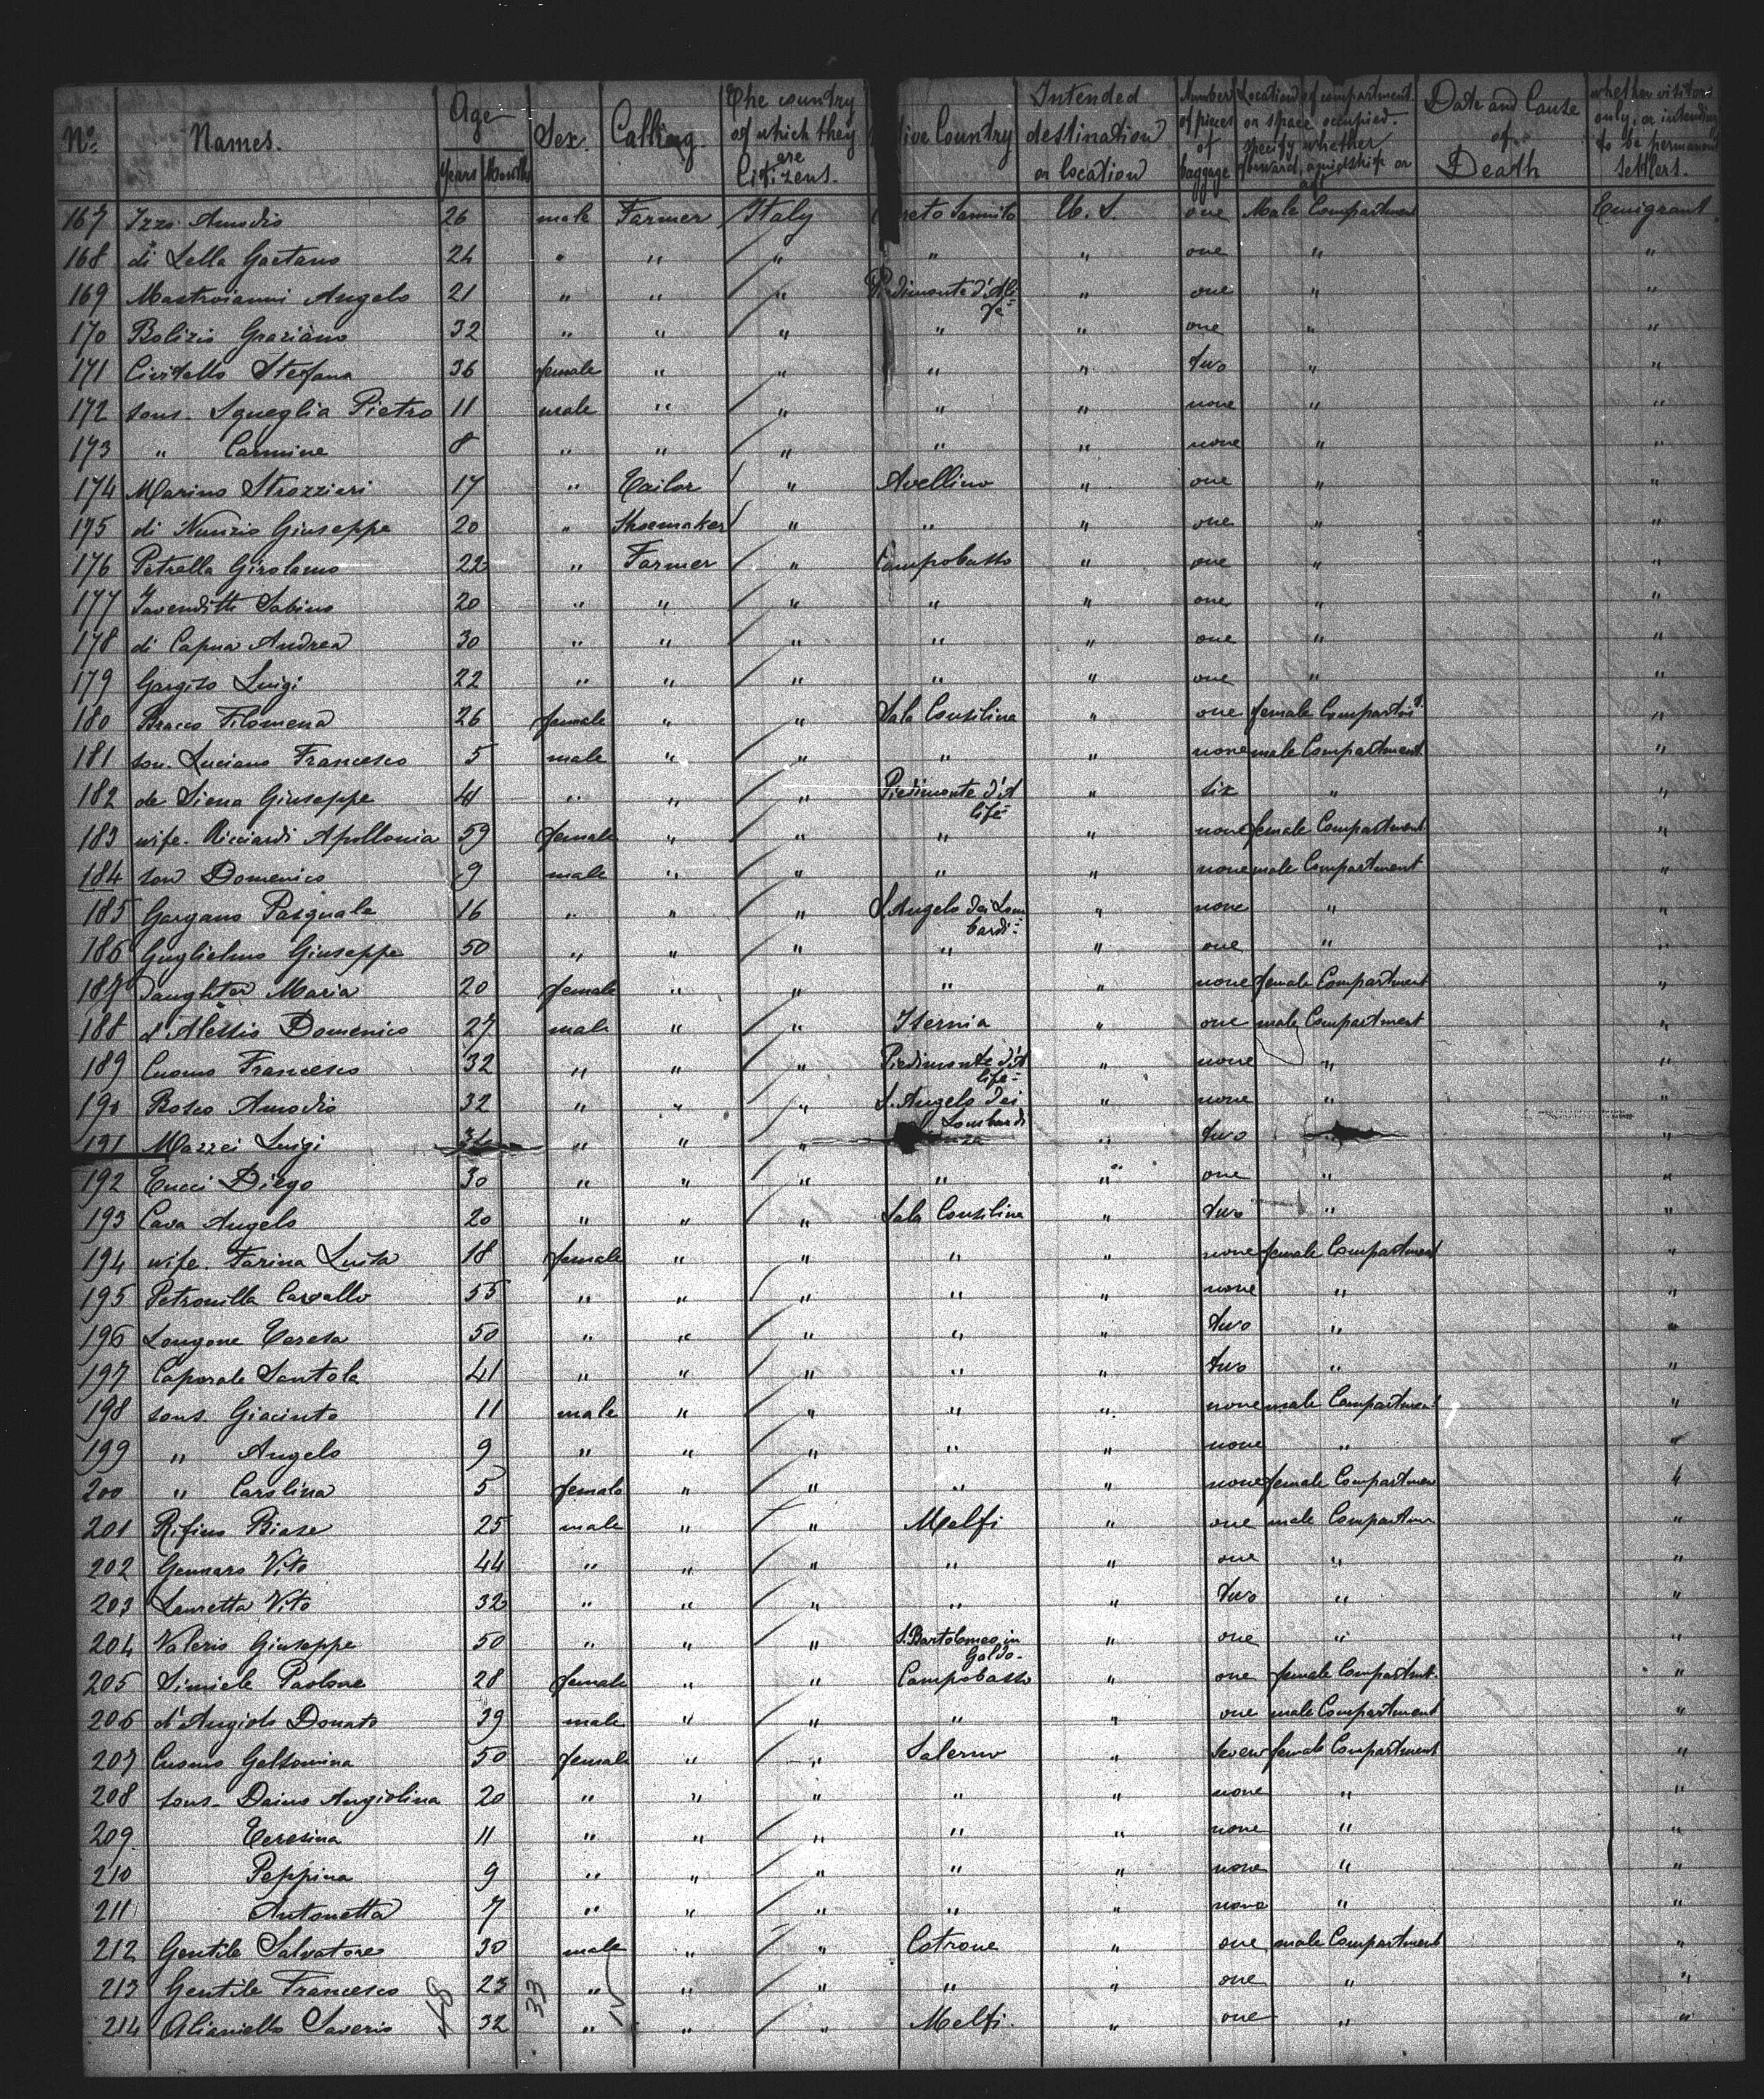 No. Names. Age Years Months Sex. Calling. The country of which they are Citizens. Native Country Intended destination or location Number of pieces of baggage Location of compartment or space occupied. specify whether forward, amidship or aft Date and Cause of Death whether visitors only, or intending to be permanent settlers.
167 Izzo Amodio 26 male Farmer Italy Sannito U. S. one Male Compartment Emigrant
168 di Lella Gaetano 24 " " " " " one " "
169 Mastroianni Angelo 21 " " " Piedimonte d'Alife " one " "
170 Bolizio Graziano 32 " " " " " one " "
171 Civitello Stefana 36 female " " " " two " "
172 sons. Squeglia Pietro 11 male " " " " none " "
173 " Carmine 8 " " " " " none " "
174 Marino Strozzieri 17 " Tailor " Avellino " one " "
175 di Nunzio Giuseppe 20 " Shoemaker " " " one " "
176 Petrella Girolamo 22 " Farmer " Campobasso " one " "
177 Iavenditti Sabino 20 " " " " " one " "
178 di Capua Andrea 30 " " " " " one " "
179 Gargiso Luigi 22 " " " " " one " "
180 Bracco Filomena 26 female " " Sala Consilina " one female Compartmt. "
181 son. Luciano Francesco 5 male " " " " none male Compartment. "
182 de Siena Giuseppe 41 " " " Piedimonte d'Alife " six " "
183 wife. Ricciardi Apollonia 59 female " " " " none female Compartment "
184 son Domenico 9 male " " " " none male Compartment "
185 Gargano Pasquale 16 " " " S. Angelo dei Lombardi " none " "
186 Guglielmo Giuseppe 50 " " " " " one " "
187 daughter Maria 20 female " " " " none female Compartment "
188 d'Alessio Domenico 27 male " " Isernia " one male Compartment "
189 Cuomo Francesco 32 " " " Piedimonte d'Alife " none " "
190 Bosco Amodio 32 " " " S. Angelo dei Lombardi " none " "
191 Mazzei Luigi " " " " two "
192 Tucci Diego 30 " " " " " one " "
193 Cava Angelo 20 " " " Sala Consilina " two " "
194 wife. Farina Luisa 18 female " " " " none female Compartment "
195 Petronilla Carvallo 55 " " " " " none " "
196 Longone Teresa 50 " " " " " two " "
197 Caporale Santola 41 " " " " " two " "
198 sons. Giacinto 11 male " " " " none male Compartment "
199 " Angelo 9 " " " " " none " "
200 " Carolina 5 female " " " " none female Compartmen "
201 Rifino Biase 25 male " " Melfi " one male Compartmen "
202 Gennaro Vito 44 " " " " " one " "
203 Lauretta Vito 32 " " " " " two " "
204 Valerio Giuseppe 50 " " " S. Bartolomeo in Galdo. " one " "
205 Simiele Paolone 28 female " " Campobasso " one female Compartmt. "
206 d'Angiolo Donato 39 male " " " " one male Compartment "
207 Cuomo Gelsomina 50 female " " Salerno " seven female Compartment "
208 sons. Daino Angiolina 20 " " " " " none " "
209 Teresina 11 " " " " " none " "
210 Peppina 9 " " " " " none " "
211 Antonetta 7 " " " " " none " "
212 Gentile Salvatore 30 male " " Cotrone " one male Compartment "
213 Gentile Francesco 23 " " " " " one " "
214 Glianiello Saverio 32 " " " Melfi. " one " "
48 33